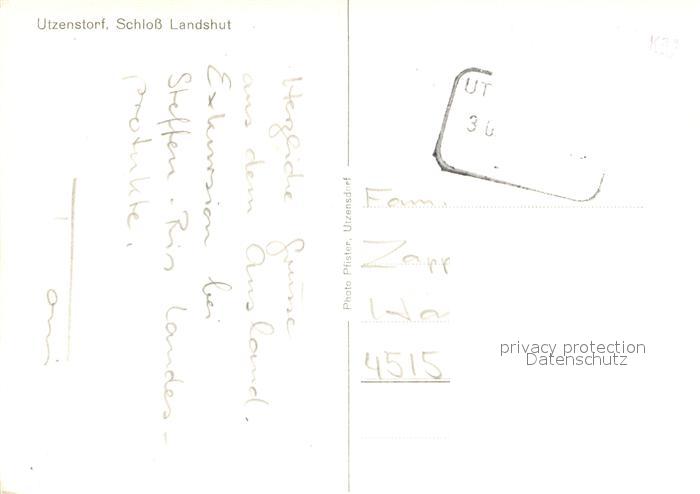 Utzenstorf, Schloß Landshut
Herzliche Grüsse
aus dem Ausland.
Exkursion bei
Steffen-Ris Landes-
produkte.
Photo Pfister, Utzensdorf
UT
3
Fam.
Zapp
Wa
4515
privacy protection
Datenschutz